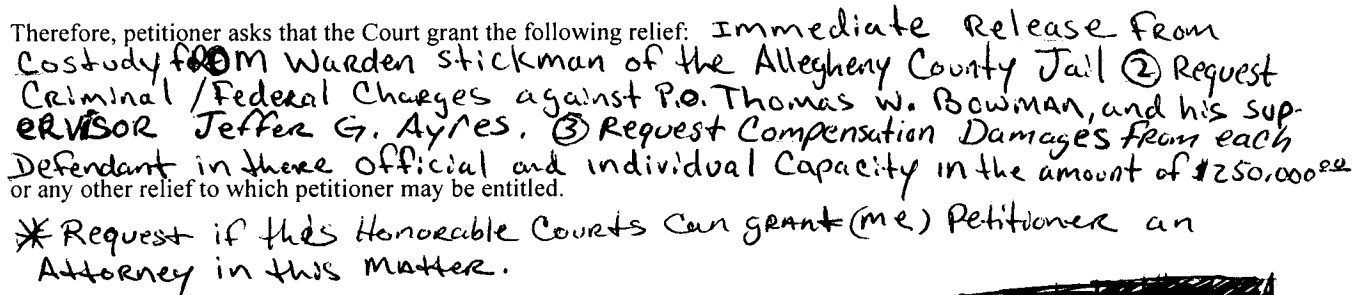 Therefore, petitioner asks that the Court grant the following relief: Immediate Release From
Costudy from Warden Stickman of the Allegheny County Jail ② Request
Criminal / Federal Charges against P.O. Thomas W. Bowman, and his sup-
ervisor Jeffer G. Ayres. ③ Request Compensation Damages from each
Defendant in there official and individual Capacity in the amount of $250,000.00
or any other relief to which petitioner may be entitled.
* Request if this Honorable Courts Can grant (me) Petitioner an
Attorney in this Matter.